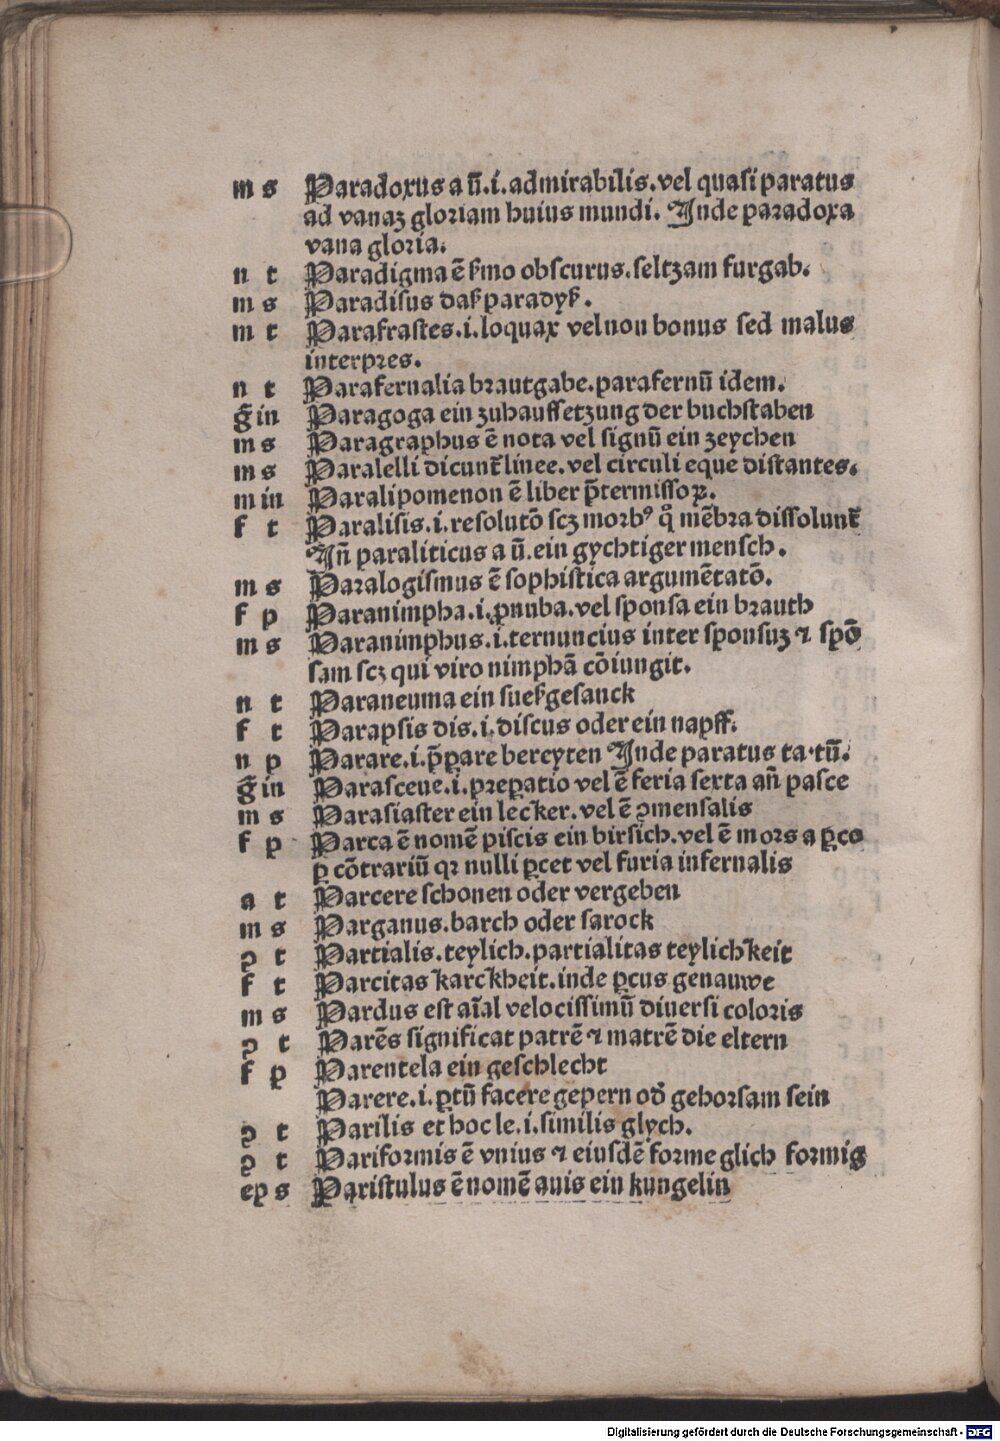 m s Paradoxus a ū.i.admirabilis.vel quasi paratus
ad vanaꝫ gloriam huius mundi. Inde paradoxa
vana gloria.
n t Paradigma ē ẜmo obscurus.seltzam furgab.
m s Paradisus daß paradyß.
m t Parafrastes.i.loquax vel nou bonus sed malus
interpres.
n t Parafernalia brautgabe.parafernū idem.
g̃ in Paragoga ein zuhauffsetzung der buchstaben
m s Paragraphus ē nota vel signū ein zeychen
m s Paralelli dicunt̃ linee.vel circuli eque distantes.
m in Paralipomenon ē liber p̄termissoꝝ.
f t Paralisis.i.resolutō scꝫ morbꝰ qͦ mēbra dissolunt̃
Iñ paraliticus a ū.ein gychtiger mensch.
m s Paralogismus ē sophistica argumētatō.
f p Paranimpha.i.ꝓnuba.vel sponsa ein brauth
m s Paranimphus.i.ternuncius inter sponsuꝫ ⁊ spō
sam scꝫ qui viro nimphā cōiungit.
n t Paraneuma ein sueßgesanck
f t Parapsis dis.i.discus oder ein napff.
n p Parare.i.p̄ꝑare bereyten Inde paratus ta.tū.
g̃ in Parasceue.i.preꝑatio vel ē feria sexta añ pasce
m s Parasiaster ein lecker.vel ē ꝯmensalis
f p Parca ē nomē piscis ein birsich.vel ē mors a ꝑco
ꝑ cōtrariū qꝛ nulli ꝑcet vel furia infernalis
a t Parcere schonen oder vergeben
m s Parganus.barch oder sarock
ꝯ t Partialis.teylich.partialitas teylichkeit
f t Parcitas karckheit.inde ꝑcus genauwe
m s Pardus est aīal velocissimū diuersi coloris
ꝯ t Parēs significat patrē ⁊ matrē die eltern
f p Parentela ein geschlecht
Parere.i.ꝑtū facere gepern oď gehorsam sein
ꝯ t Parilis et hoc le.i.similis glych.
ꝯ t Pariformis ē vnius ⁊ eiusdē forme glich formig
ep s Paristulus ē nomē auis ein kungelin
Digitalisierung gefördert durch die Deutsche Forschungsgemeinschaft - DFG